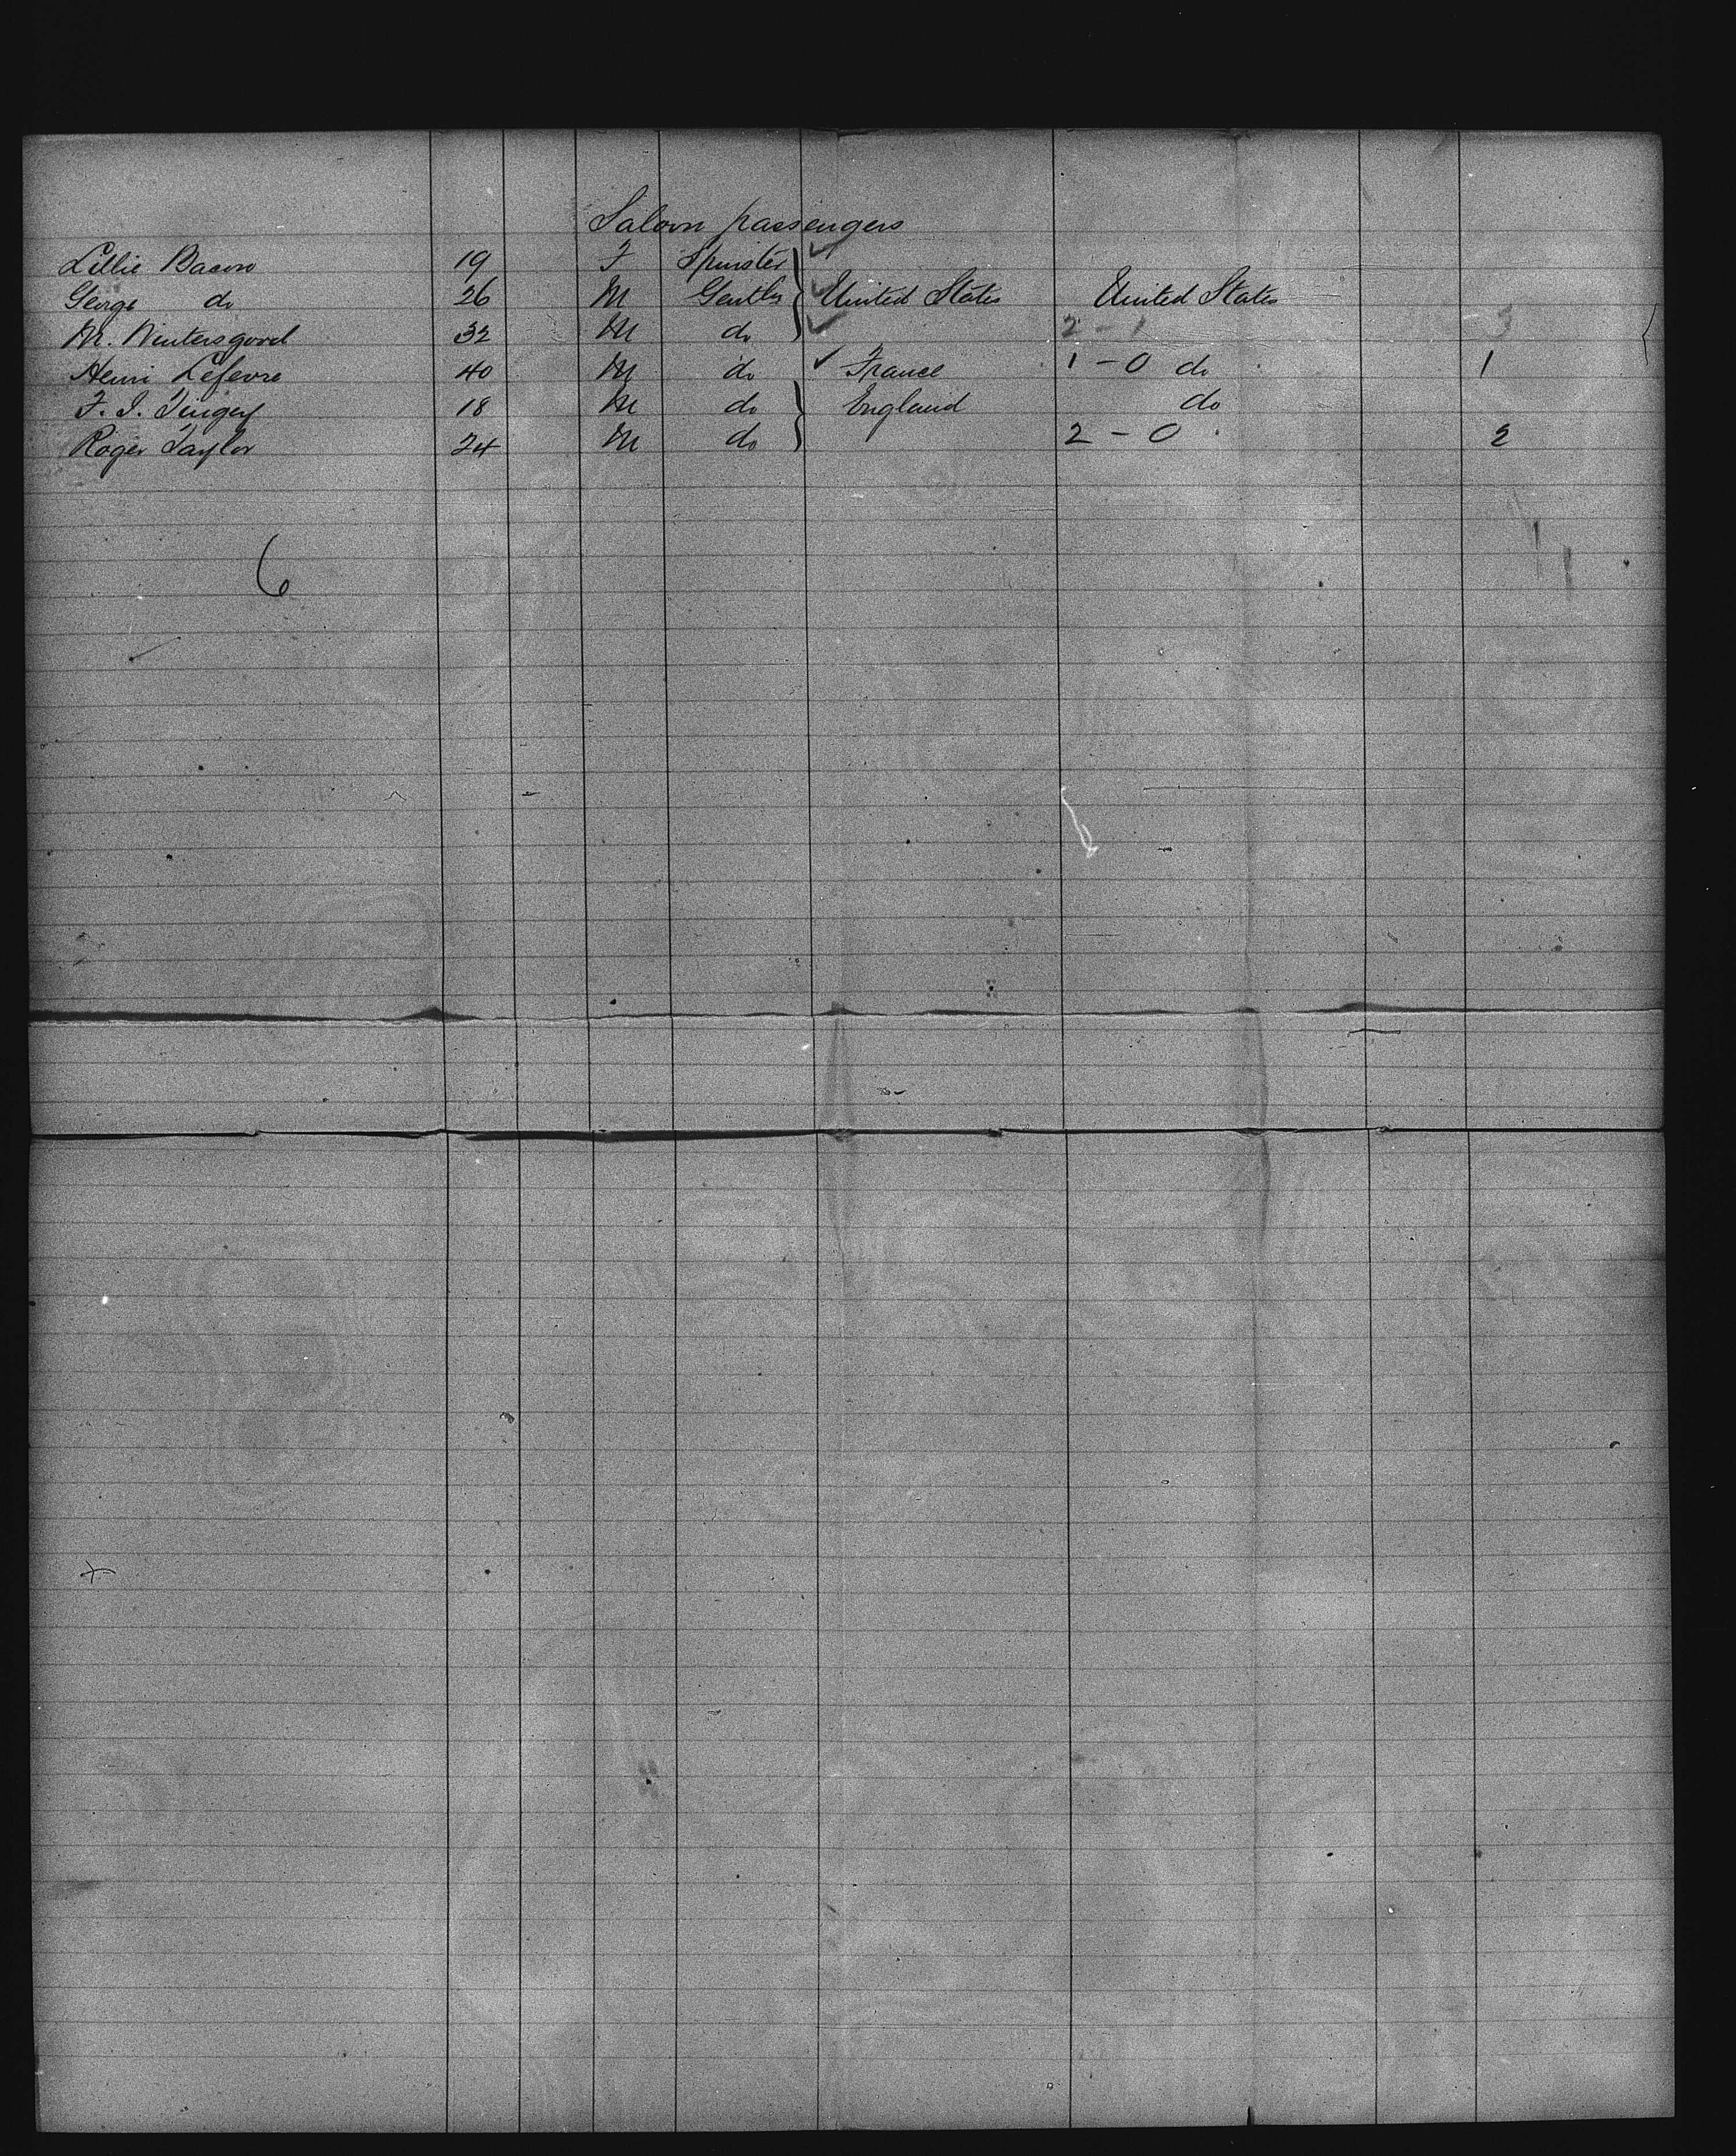 Saloon passengers
Lillie Bacon 19 F Spinster ✓
George do 26 M Gentln ✓ United States United States
M. Wintersgood 32 M do ✓ 2 - 1 3
Henri Lefevre 40 M do ✓ France 1 - 0 do 1
F. I. Tingey 18 M do England do
Roger Taylor 24 M do 2 - 0 2
6